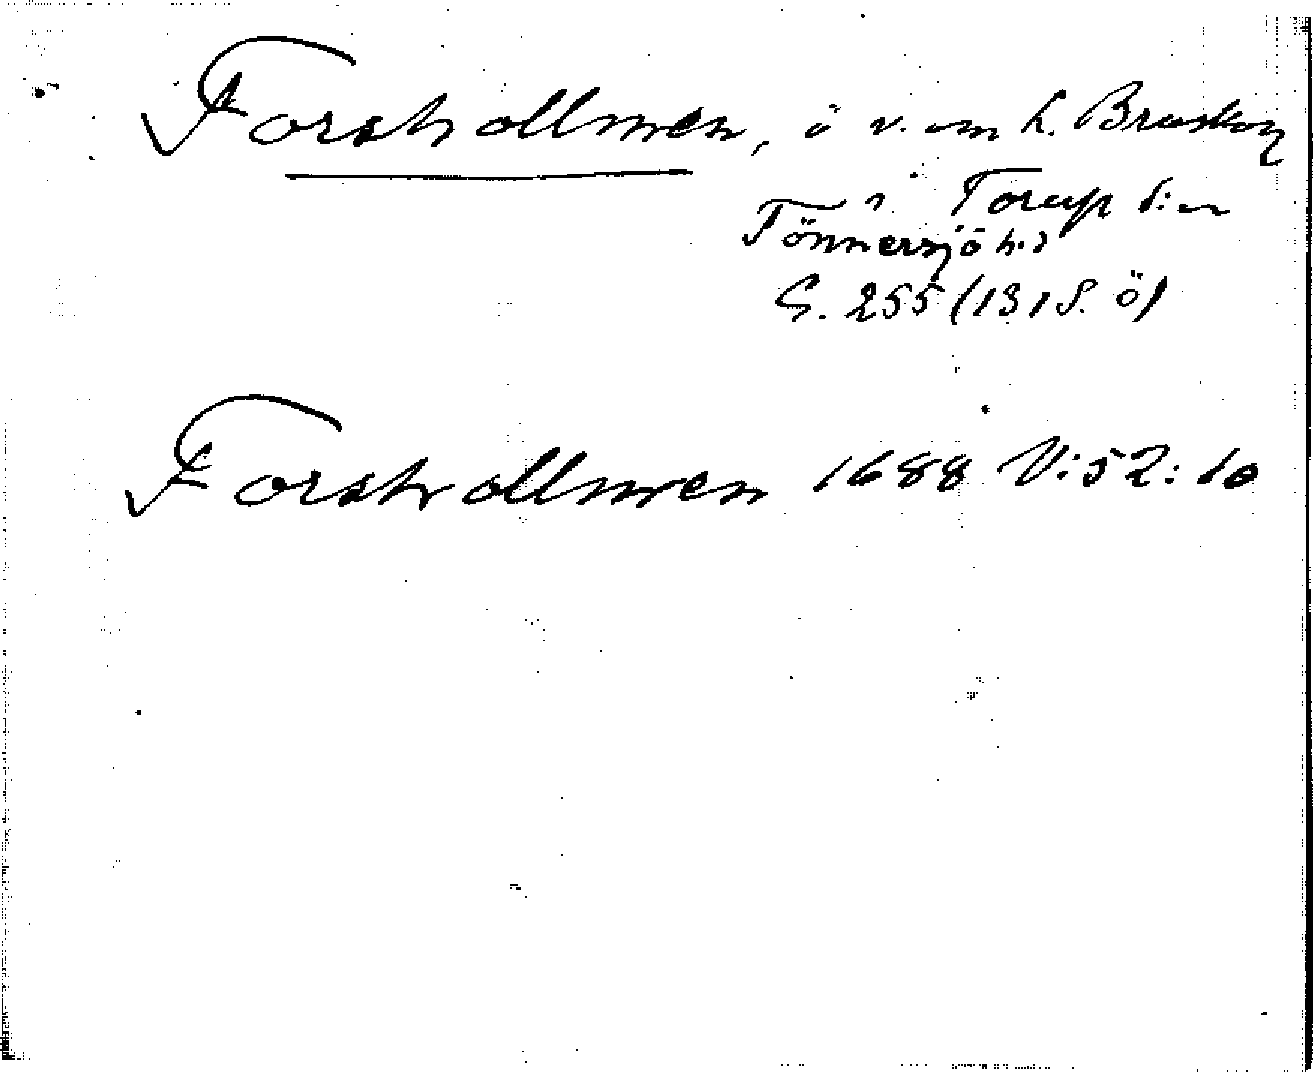 Forshollmen, ö v. om h. Braskog
i Torup s:n
Tönnersjö h.d
G. 255 (131 S. ö)
Forshollmen 1688 V:52:10